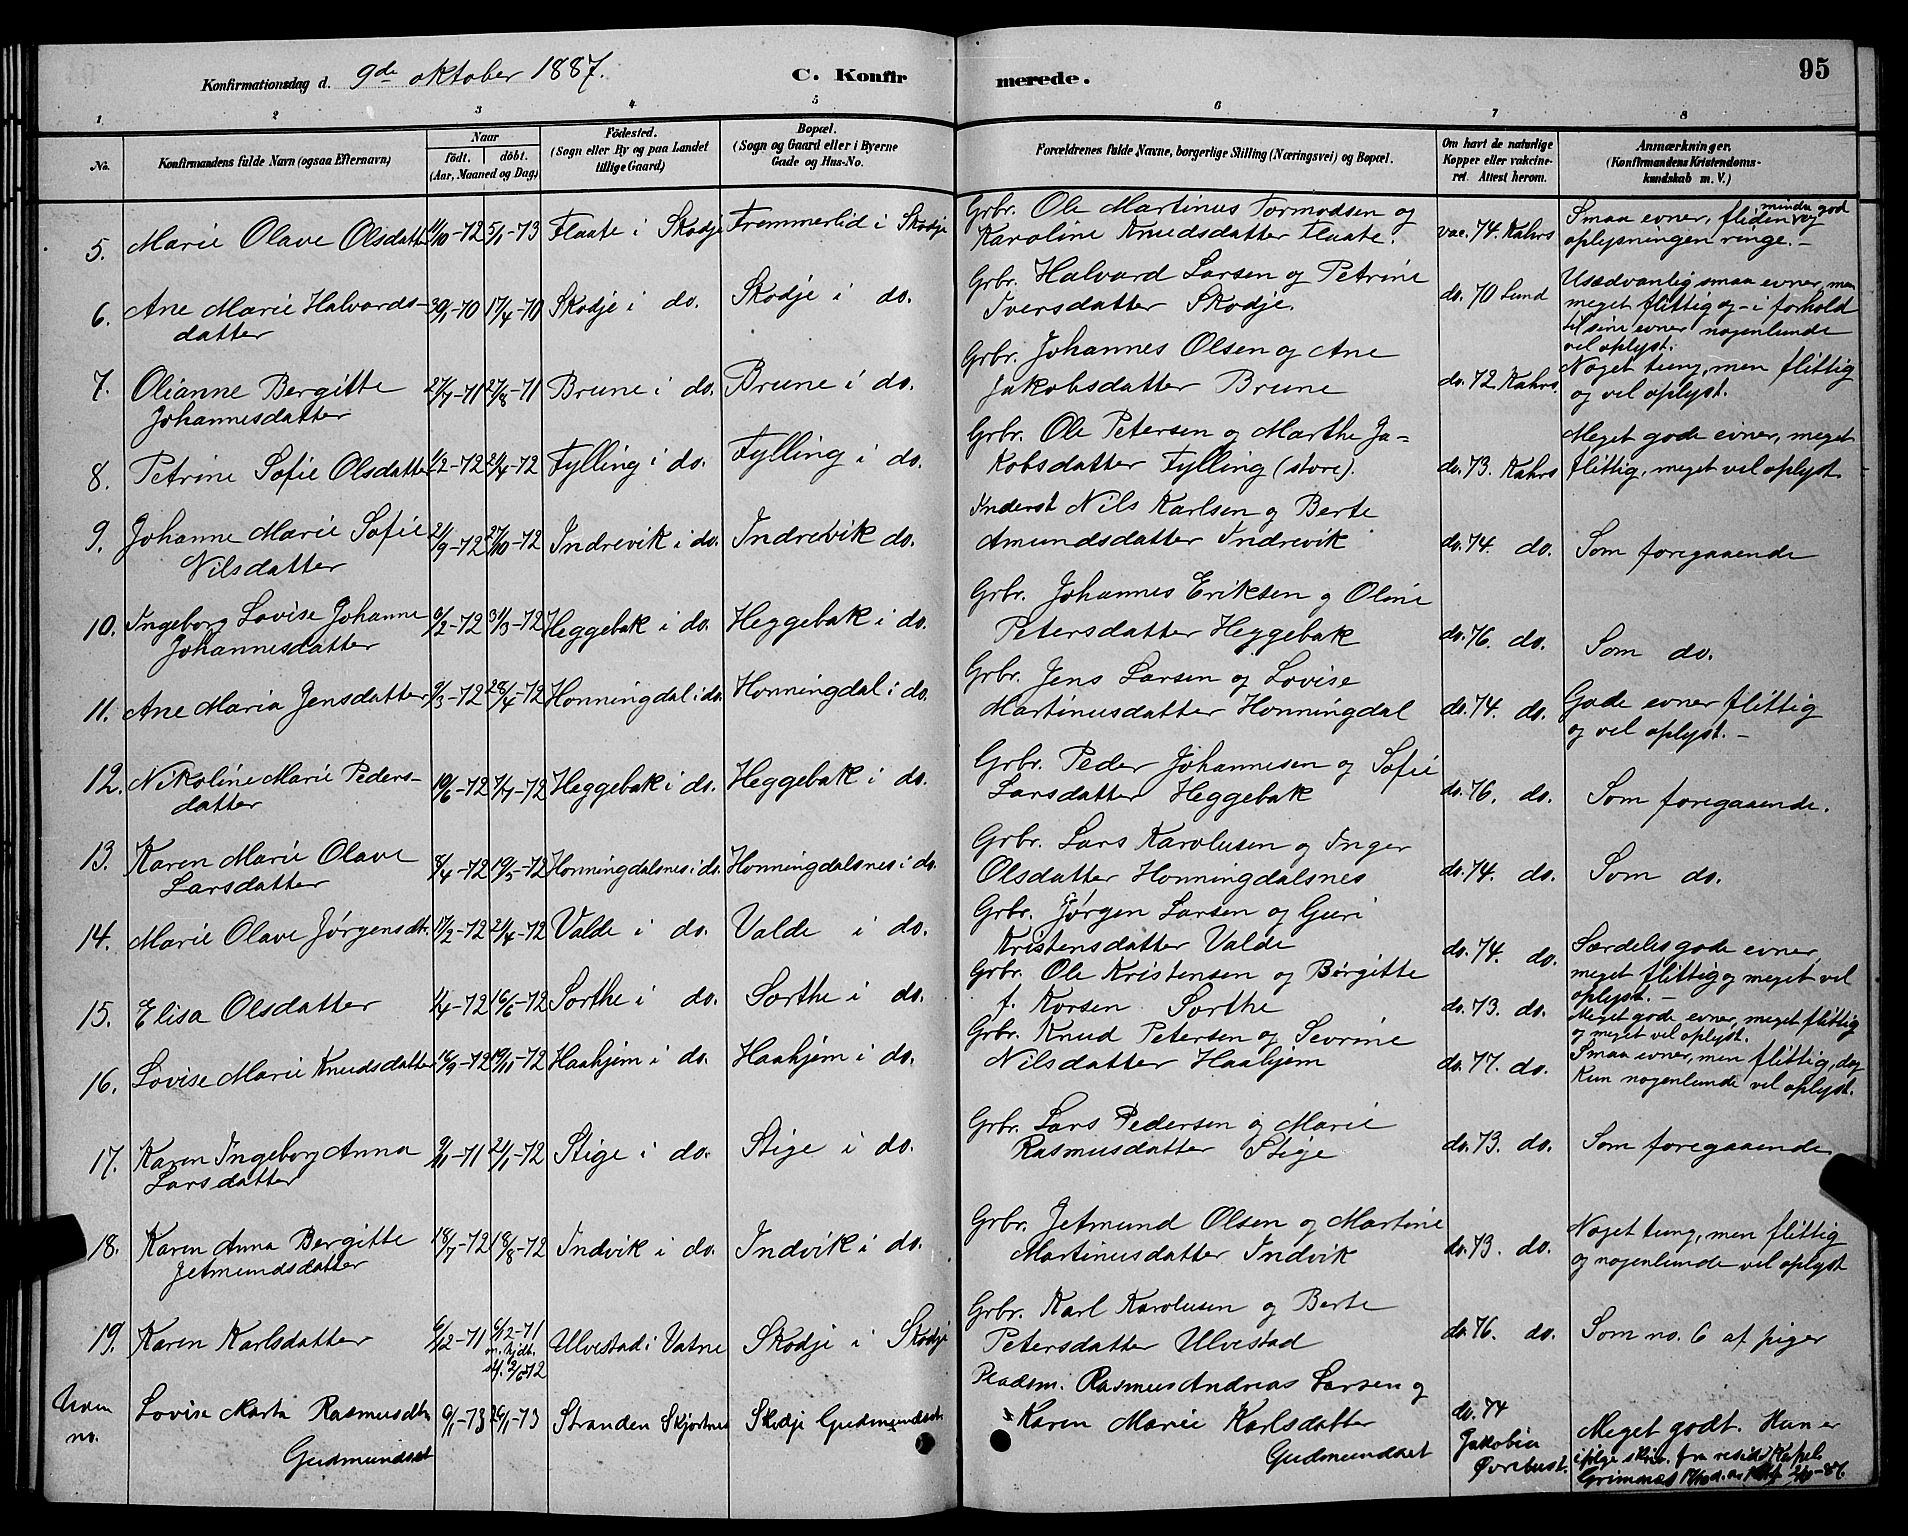 Konfirmationsdag d. 9de oktober 1887. C. Konfirmerede. 95
1 2 3 4 5 6 7 8
No. Konfirmandens fulde Navn (ogsaa Efternavn) Naar født. døbt. (Aar, Maaned og Dag) Födested. (Sogn eller By og paa Landet tillige Gaard) Bopæl. (Sogn og Gaard eller i Byerne Gade og Hus-No. Forældrenes fulde Navne, borgerlige Stilling (Næringsvei) og Bopæl. Om havt de naturlige Kopper eller vakcineret. Attest herom. Anmærkninger. (Konfirmandens Kristendomskundskab m. V.)
5. Marie Olave Olsdatter 11/10-72 5/1-73 Flaate i Skodje Fremmerlid i Skodje Grbr. Ole Martinus Tormodsen og vac. 74. Kahrs Smaa evner, fliden mindre god og
Karoline Knudsdatter Flaate. oplysningen ringe.-
6. Ane Marie Halvards- 30/1-70 17/4-70 Skodje i do. Skodje i do. Grbr. Halvard Larsen og Petrine do. 70 Lund Usedvanlig smaa evner, men
datter Iversdatter Skodje. meget flittig og - i forhold
til sine evner nogenlunde
vel oplyst.
7. Olianne Bergitte 27/7-71 27/8-71 Brune i do. Brune i do. Grbr. Johannes Olsen og Ane do. 72 Kahrs. Noget tung, men flittig
Johannesdatter Jakobsdatter Brune og vel oplyst.
8. Petrine Sofie Olsdatter 1/2-72 21/4-72 Fylling i do. Fylling i do. Grbr. Ole Petersen og Marthe Ja- do. 73. Kahrs Meget gode evner, meget
kobsdatter Fylling (store). flittig, meget vel oplyst
9. Johanne Marie Sofie 21/9-72 27/10-72 Indrevik i do. Indrevik do. Inderst Nils Karlsen og Berte do. 74. do. Som foregaaende
Nilsdatter Amundsdatter Indrevik
10. Ingeborg Lovise Johanne 6/2-72 31/3-72 Heggebak i do. Heggebak i do. Grbr. Johannes Eriksen og Oline do. 76. do. Som do.
Johannesdatter Petersdatter Heggebak
11. Ane Maria Jensdatter 9/3-72 28/4-72 Honningdal i do. Honningdal i do. Grbr. Jens Larsen og Lovise do. 74. do. Gode evner flittig
Martinusdatter Honningdal og vel oplyst.-
12. Nikoline Marie Peders- 10/6-72 7/7-72 Heggebak i do. Heggebak i do. Grbr. Peder Johannesen og Sofie do. 76. do. Som foregaaende.
datter Larsdatter Heggebak
13. Karen Marie Olave 8/4-72 19/5-72 Honningdalsnes i do. Honningdalsnes i do. Grbr. Lars Karolusen og Inger do. 74. do. Som do.
Larsdatter Olsdatter Honningdalsnes
14. Marie Olave Jørgensdtr. 17/2-72 21/4-72 Valde i do. Valde i do. Grbr. Jørgen Larsen og Guri do. 74. do. Særdeles gode evner,
Kristensdatter Valde meget flittig og meget vel
oplyst.-
15. Elisa Olsdatter 1/4-72 16/5-72 Sorthe i do. Sorthe i do. Grbr. Ole Kristensen og Børgitte do. 73. do. Meget gode evner, meget flittig
f. Korsen Sorthe og meget vel oplyst.
16. Lovise Marie Knudsdatter 16/9-72 10/11-72 Haahjem i do. Haahjem i do. Grbr. Knud Petersen og Sevrine do. 77. do. Smaa evner, men flittig, dog
Nilsdatter Haahjem kun nogenlunde vel oplyst.
17. Karen Ingeborg Anna 9/11-71 21/1-72 Stige i do. Stige i do. Grbr. Lars Pedersen og Marie do. 73. do. Som foregaaende
Larsdatter Rasmusdatter Stige
18. Karen Anna Bergitte 18/7-72 18/8-72 Indvik i do. Indvik i do. Grbr. Jetmund Olsen og Martine do. 73. do. Noget tung, men flittig
Jetmundsdatter Martinusdatter Indvik og nogenlunde vel oplyst
19. Karen Karlsdatter 6/12-71 6/12-71 Ulvestad i Vatne Skodje i Skodje Grbr. Karl Karolusen og Berte do. 76. do. Som no. 6 af piger
Petersdatter Ulvestad
Uden no. Lovise Marta Rasmusdtr. 9/1-73 Stranden Skjortnes Skodje Gudmundset Pladsm. Rasmus Andreas Larsen og do. 74 Meget godt. Hun er
Gudmundset Karen Marie Karlsdatter Jakobia ifølge skriv. fra resid. Kapel.
Gudmundset Øvrebust. Grimnes